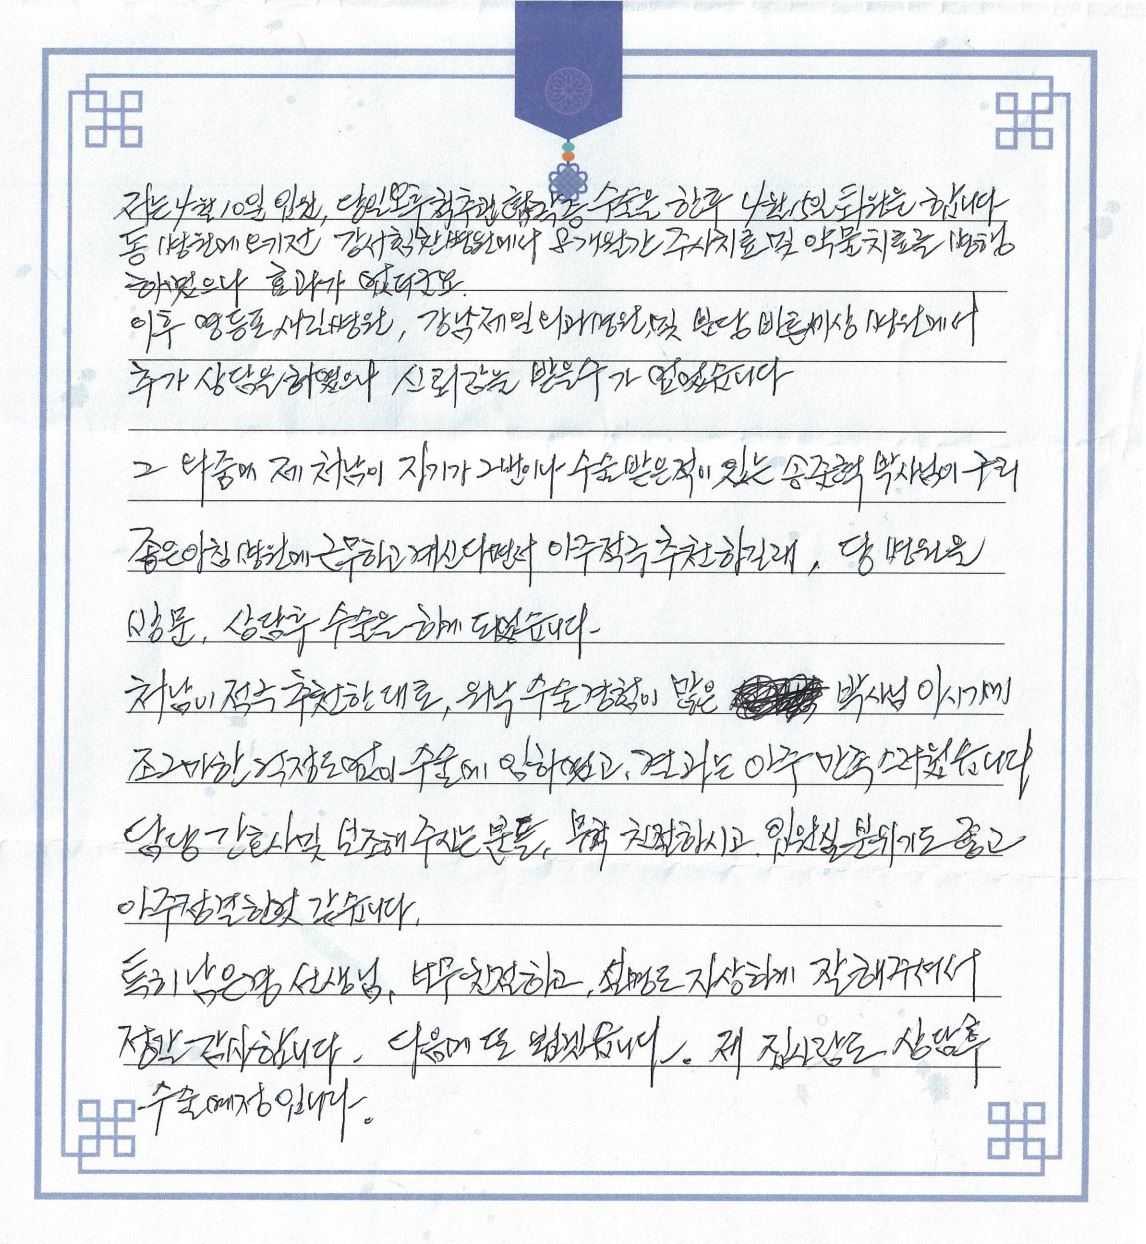 저는 4월 10일 입원, 당일 오후 척추관 협착증 수술을 한후 4월 15일 퇴원을 합니다
동 병원에 오기전 강서힘찬병원에서 8개월간 주사치료 및 약물치료를 병행
하였으나 효과가 없더군요.
이후 영등포 새길병원, 강남제일외과병원, 및 분당 바른세상 병원에서
추가 상담을 하였으나 신뢰감을 받을수가 없었습니다
그 와중에 제 처남이 자기가 2번이나 수술받은적이 있는 송준혁 박사님이 구리
좋은아침 병원에 근무하고 계신다면서 아주적극 추천하길래, 당 병원을
방문, 상담후 수술을 하게 되었습니다-
처남이 적극 추천한대로, 워낙 수술경험이 많은 박사님 이시기에
조그마한 걱정도 없이 수술에 임하였고, 결과는 아주 만족스러웠습니다
담당 간호사및 보조해주시는 분들, 무척 친절하시고, 입원실 분위기도 좋고
아주청결한것 같습니다.
특히 남은영 선생님, 너무 친절하고, 설명도 자상하게 잘해주셔서
정말 감사합니다. 다음에 또 뵙겠습니다. 제 집사람도 상담후
수술예정입니다.